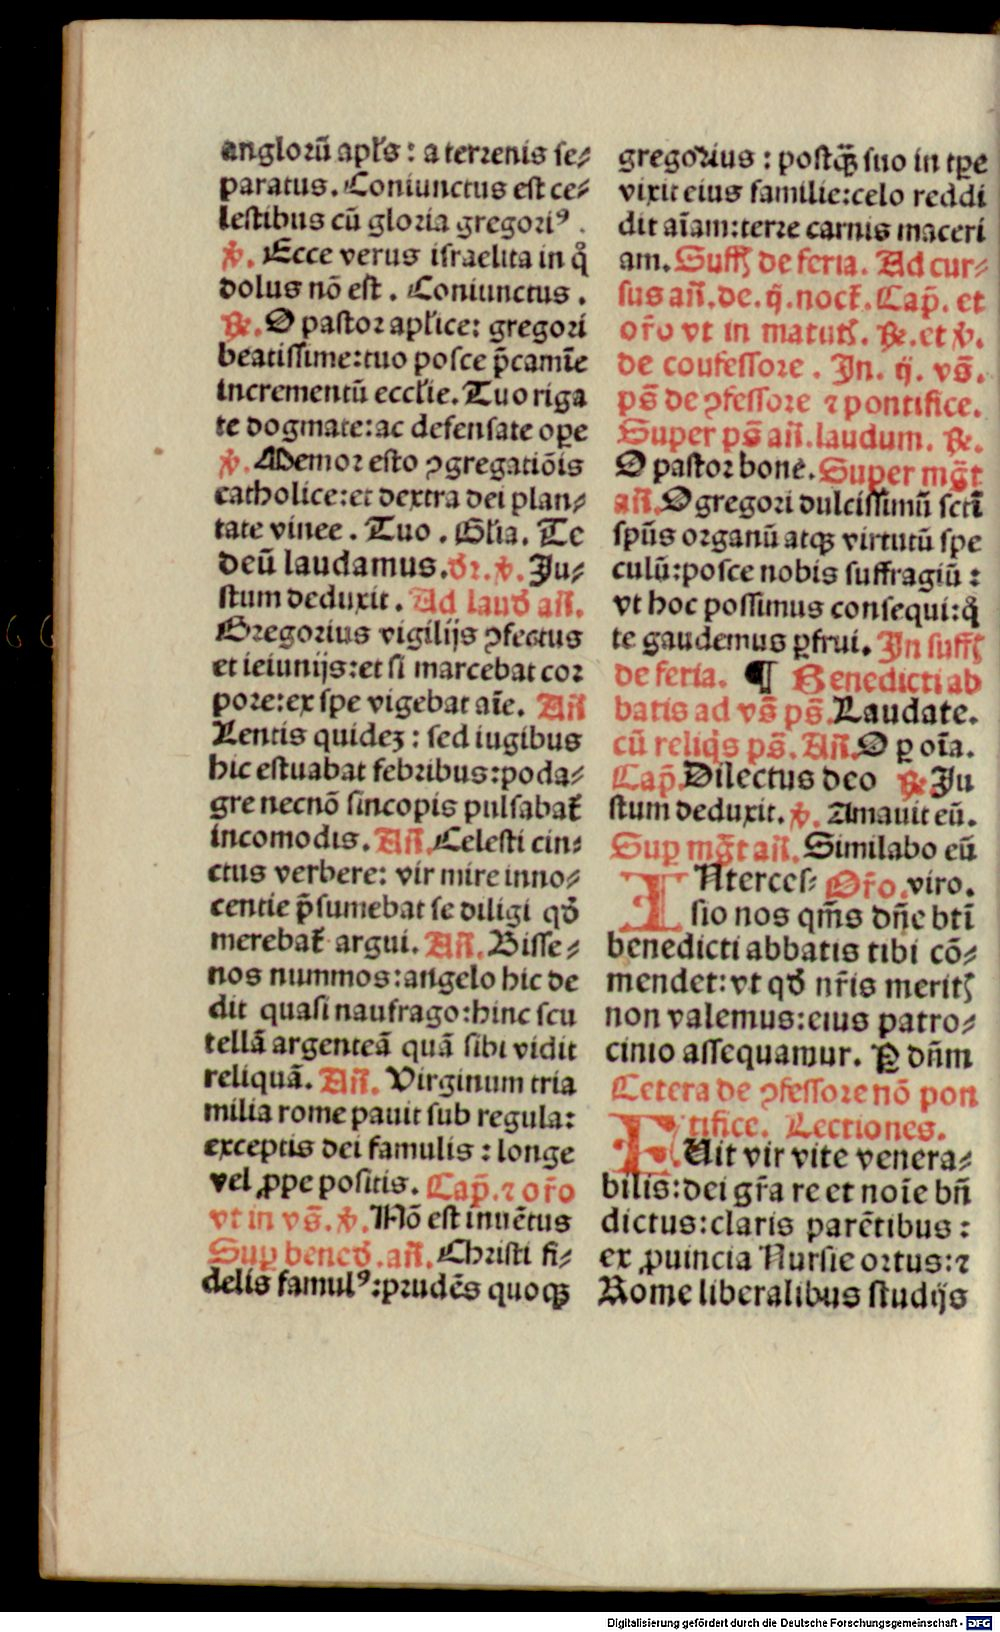 anglorū apl's : a terrenis se⸗
paratus. Coniunctus est ce⸗
lestibus cū gloria gregoriꝰ .
℣. Ecce verus israelita in q̊
dolus nō est . Coniunctus .
℞. O pastor apl'ice: gregori
beatissime:tuo posce p̄camīe
incrementū eccl'ie. Tuo riga
te dogmate:ac defensate oꝑe
℣. Memor esto ꝯgregatiōis
catholice:et dextra dei plan⸗
tate vinee . Tuo . Gl'ia. Te
deū laudamus. d'r. ℣. Ju⸗
stum deduxit . Ad laud' añ.
Gregorius vigilijs ꝯfectus
et ieiunijs:et si marcebat cor
pore:ex spe vigebat aīe. Añ
Lentis quidez : sed iugibus
hic estuabat febribus:poda⸗
gre necnō sincopis pulsabat'
incomodis. Añ. Celesti cin⸗
ctus verbere: vir mire inno⸗
centie p̄sumebat se diligi qd'
merebat' argui. Añ. Bisse⸗
nos nummos:angelo hic de
dit quasi naufrago:hinc scu
tellā argenteā quā sibi vidit
reliquā. Añ. Virginum tria
milia rome pauit sub regula:
exceptis dei famulis : longe
vel ꝓpe positis. Cap̄. ⁊ or̄o
vt in vs̄. ℣. Nō est inuētus
Suꝑ bened'. añ. Christi fi⸗
delis famulꝰ:prudēs quoqꝫ
gregorius : postqꝫ̄ suo in tꝑe
vixit eius familie:celo reddi
dit aīam:terre carnis maceri
am. Suffꝭ de feria. Ad cur⸗
sus añ. de. ij. noct'. Cap̄. et
or̄o vt in matutꝭ. ℞. et ℣.
de confessore . In. ij. vs̄.
ps̄ de ꝯfessore ⁊ pontifice.
Super ps̄ añ. laudum. ℞.
O pastor bone. Super mḡt
añ. O gregori dulcissimū sctī
spūs organū atqꝫ virtutū spe
culū:posce nobis suffragiū :
vt hoc possimus consequi:q̊
te gaudemus ꝑfrui. In suffꝭ
de feria. ¶ Benedicti ab
batis ad vs̄ ps̄. Laudate.
cū reliq̇s ps̄. Añ. O ꝑ oīa.
Cap̄. Dilectus deo ℞. Ju
stum deduxit. ℣. Amauit eū.
Suꝑ mḡt añ. Similabo eū
INterces⸗ Or̄o. viro.
sio nos qm̄s dn̄e btī
benedicti abbatis tibi cō⸗
mendet: vt qd' nr̄is meritꝭ
non valemus:eius patro⸗
cinio assequamur. Ꝑ dn̄m
Cetera de ꝯfessore nō pon
tifice. Lectiones.
FUit vir vite venera⸗
bilis:dei gr̄a re et noīe bn̄
dictus:claris parētibus :
ex ꝓuincia Nursie ortus:⁊
Rome liberalibus studijs
Digitalisierung gefördert durch die Deutsche Forschungsgemeinschaft - DFG